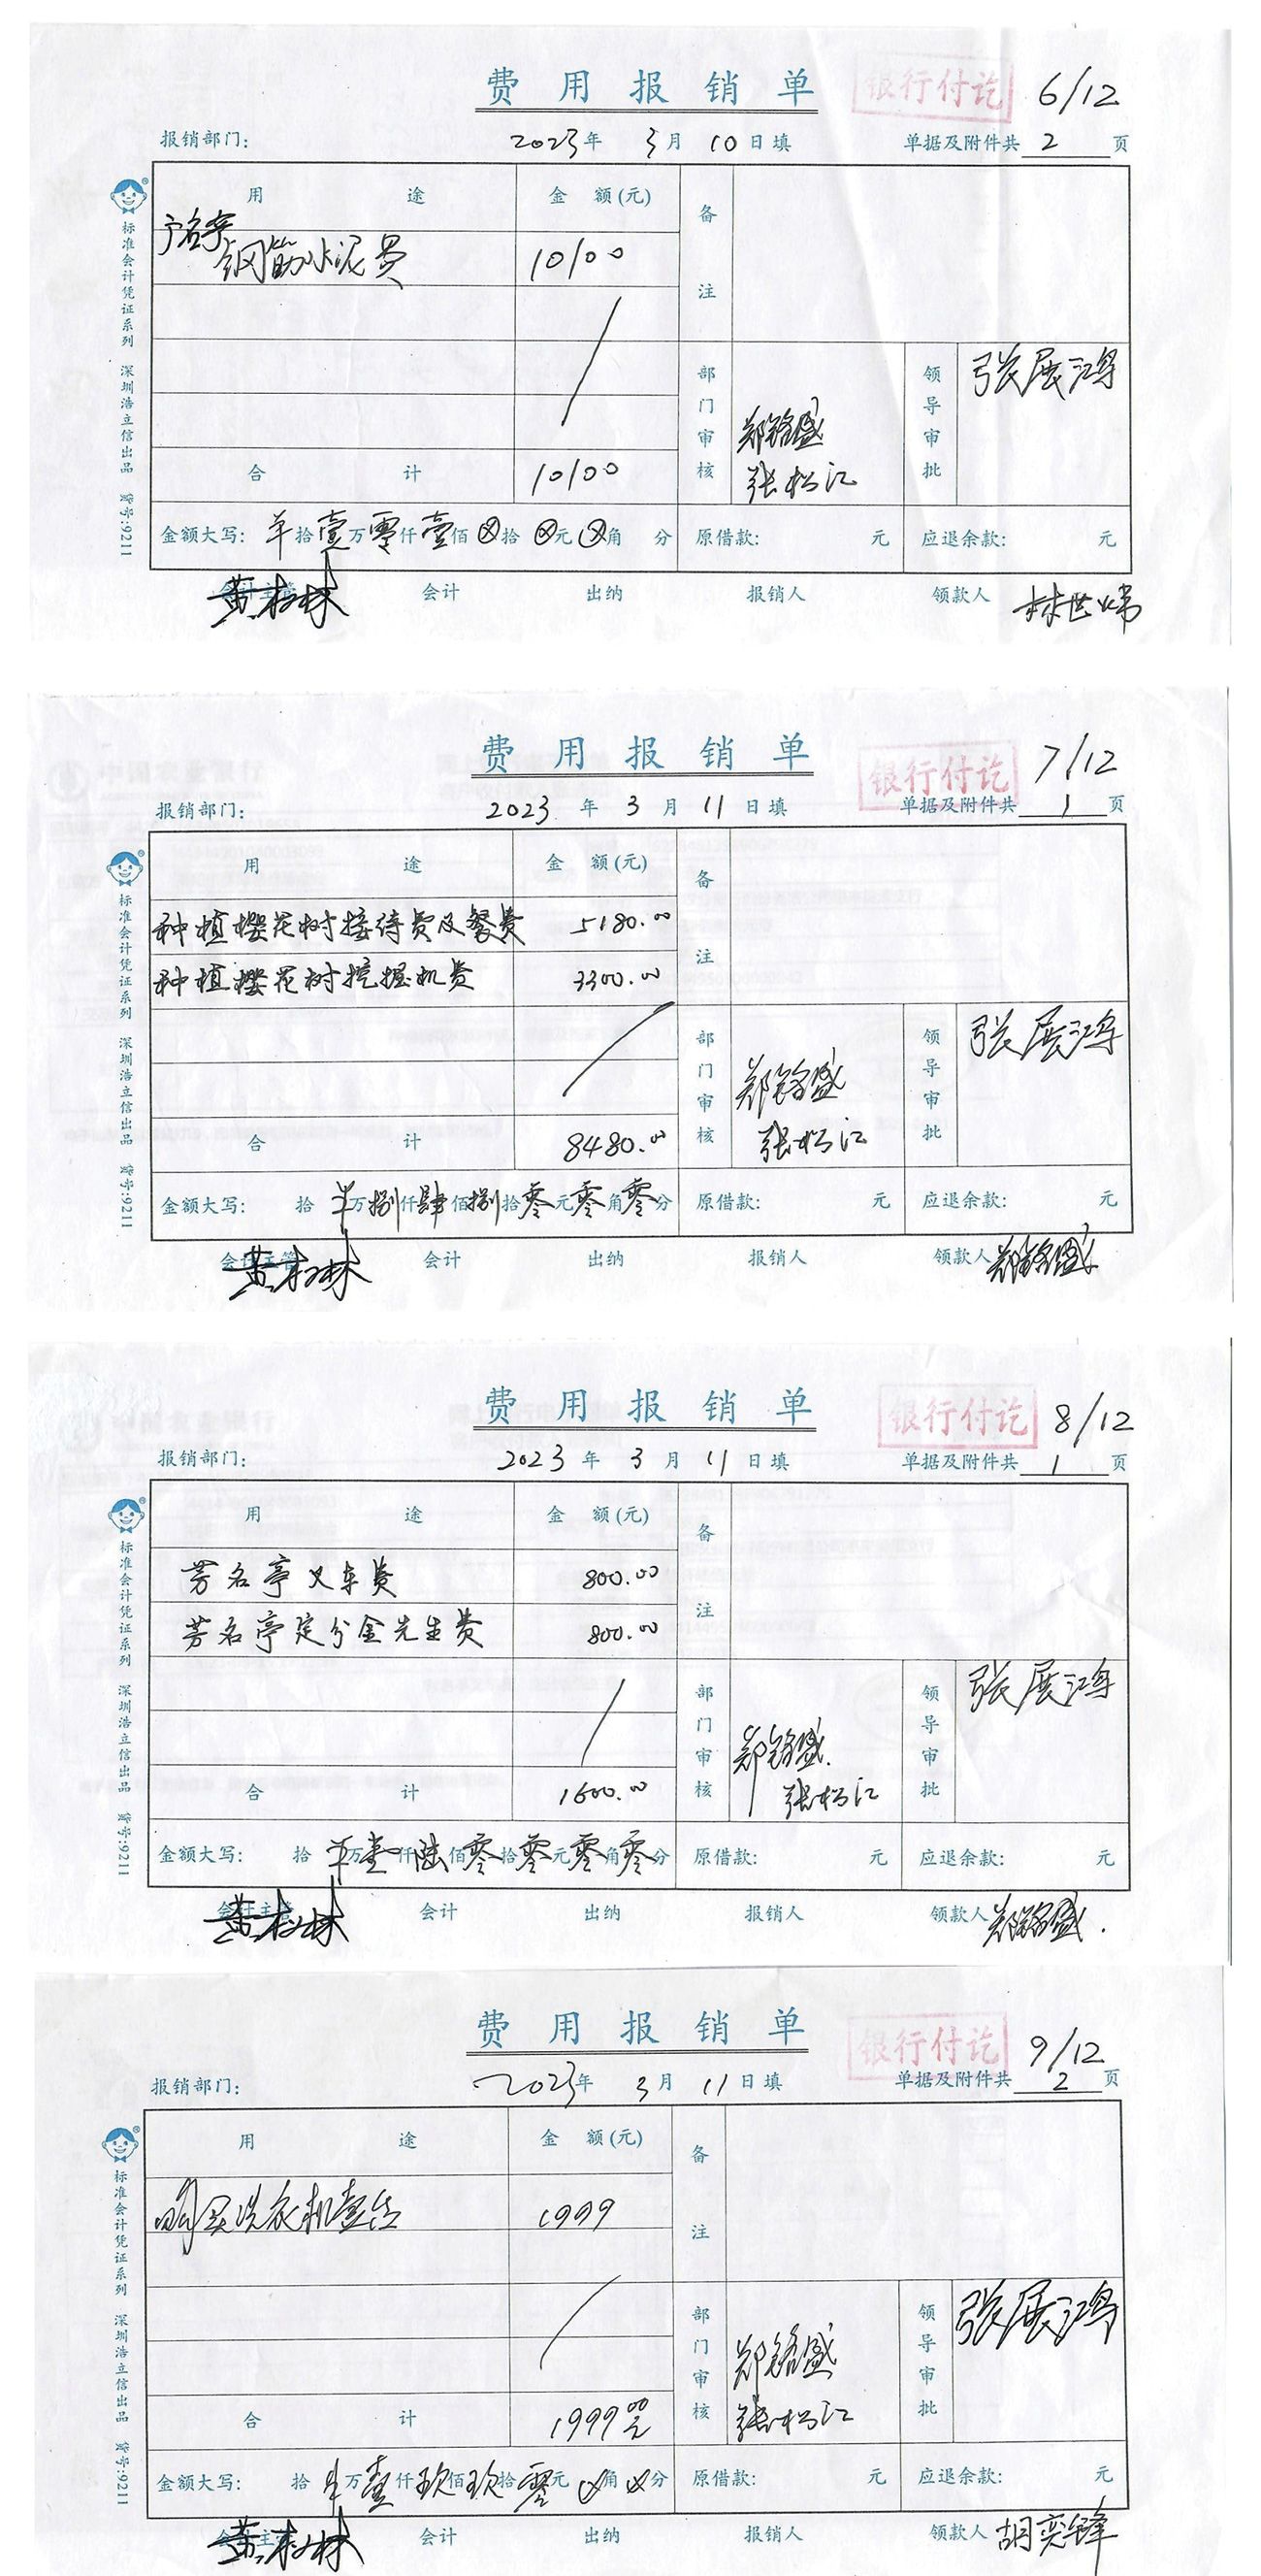 费用报销单
银行付讫
6/12
报销部门: 2023年 3月 10日填 单据及附件共 2 页
用途 金额(元) 备注
钢筋水泥费 10100
合计 10100
部门审核 郑铭盛 张松江
领导审批 张展鸿
金额大写: 羊拾壹万零仟壹佰⊗拾⊗元⊗角 分 原借款: 元 应退余款: 元
会计主管 黄松林 会计 出纳 报销人 领款人 林世炜
标准会计凭证系列 深圳浩立信出品 货号:9211
费用报销单
银行付讫
7/12
报销部门: 2023年 3月 11日填 单据及附件共 1 页
用途 金额(元) 备注
种植樱花树接待费及餐费 5180.00
种植樱花树挖掘机费 3300.00
合计 8480.00
部门审核 郑铭盛 张松江
领导审批 张展鸿
金额大写: 拾羊万捌仟肆佰捌拾零元零角零分 原借款: 元 应退余款: 元
会计主管 黄松林 会计 出纳 报销人 领款人 郑铭盛
标准会计凭证系列 深圳浩立信出品 货号:9211
费用报销单
银行付讫
8/12
报销部门: 2023年 3月 11日填 单据及附件共 1 页
用途 金额(元) 备注
芳名亭叉车费 800.00
芳名亭定分金先生费 800.00
合计 1600.00
部门审核 郑铭盛 张松江
领导审批 张展鸿
金额大写: 拾羊万壹仟陆佰零拾零元零角零分 原借款: 元 应退余款: 元
会计主管 黄松林 会计 出纳 报销人 领款人 郑铭盛.
标准会计凭证系列 深圳浩立信出品 货号:9211
费用报销单
银行付讫
9/12
报销部门: 2023年 3月 11日填 单据及附件共 2 页
用途 金额(元) 备注
购买洗衣机壹台 1999
合计 1999.00元
部门审核 郑铭盛 张松江
领导审批 张展鸿
金额大写: 拾羊万壹仟玖佰玖拾零元⊗角⊗分 原借款: 元 应退余款: 元
会计主管 黄松林 会计 出纳 报销人 领款人 胡奕锋
标准会计凭证系列 深圳浩立信出品 货号:9211